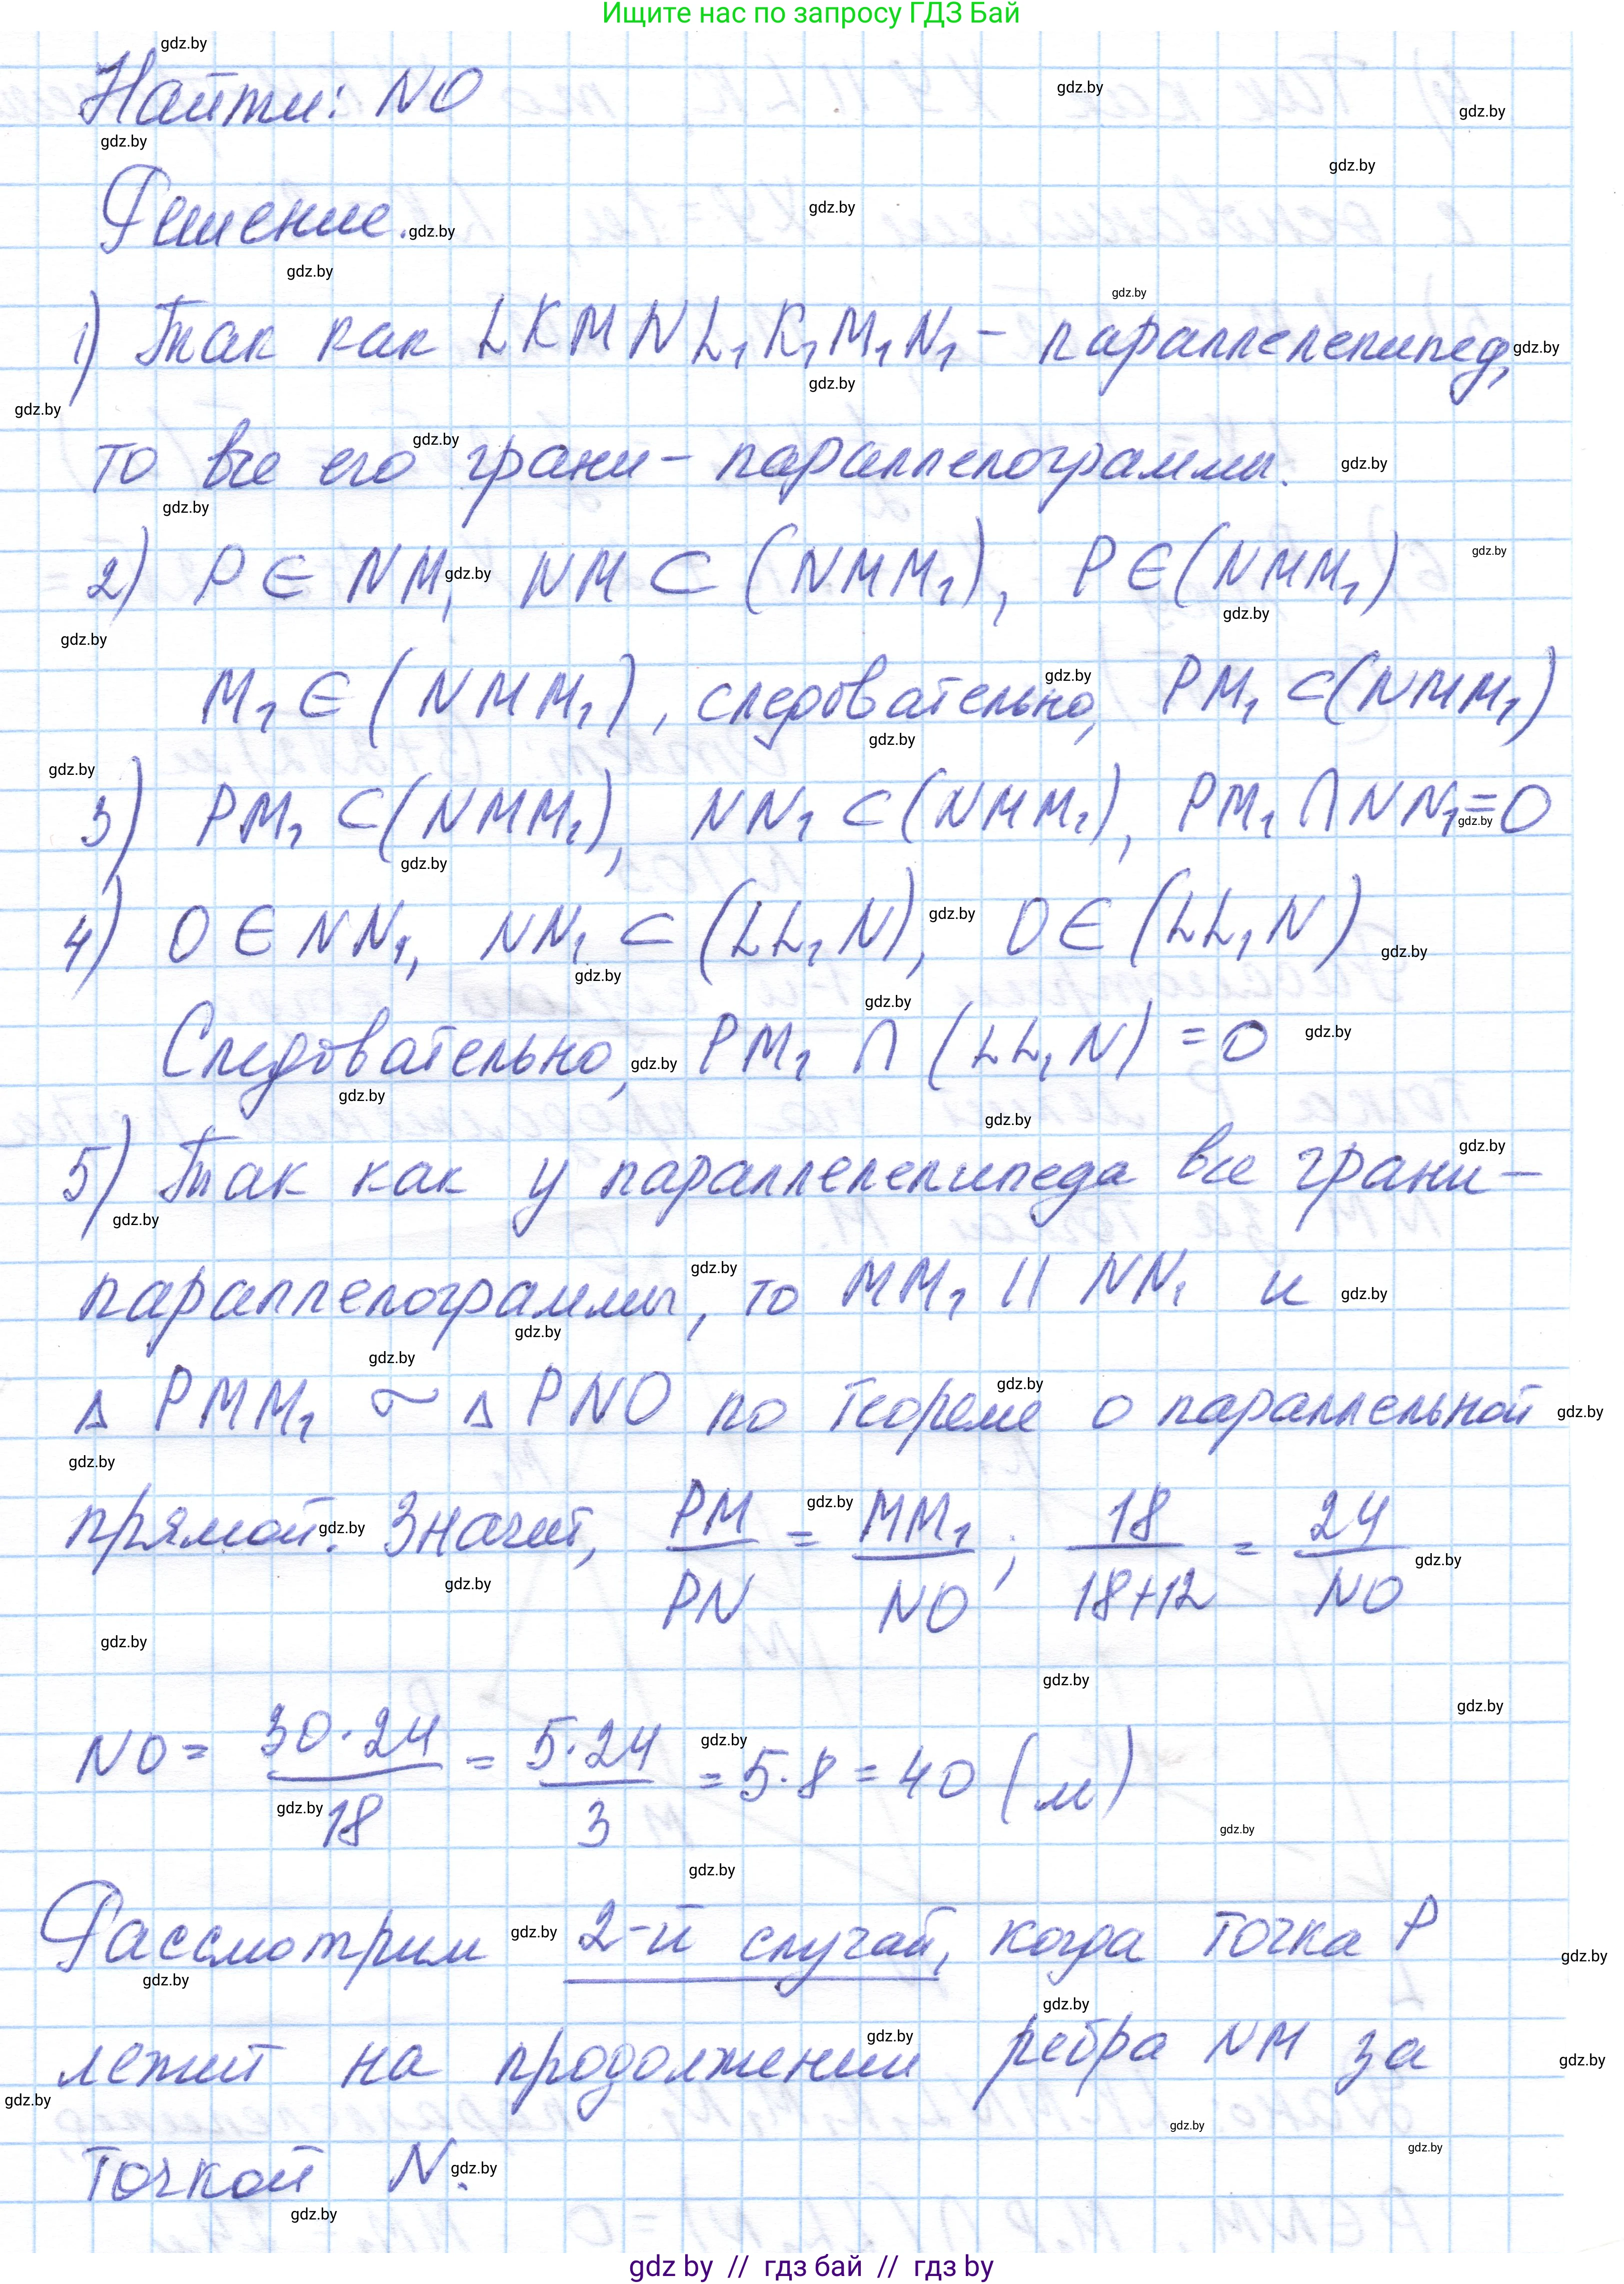 Ищите нас по запросу ГДЗ Бай
Найти: NO
Решение.
1) Так как LKMNL₁K₁M₁N₁ – параллелепипед,
то все его грани – параллелограммы.
2) P ∈ NM, NM ⊂ (NMM₁), P ∈ (NMM₁)
M₁ ∈ (NMM₁), следовательно, PM₁ ⊂ (NMM₁)
3) PM₁ ⊂ (NMM₁), NN₁ ⊂ (NMM₁), PM₁ ∩ NN₁ = O
4) O ∈ NN₁, NN₁ ⊂ (LL₁N), O ∈ (LL₁N)
Следовательно, PM₁ ∩ (LL₁N) = O
5) Так как у параллелепипеда все грани –
параллелограммы, то MM₁ || NN₁ и
Δ PMM₁ ~ Δ PNO по теореме о параллельной
прямой. Значит, PM/PN = MM₁/NO; 18/(18+12) = 24/NO
NO = 30·24/18 = 5·24/3 = 5·8 = 40 (м)
Рассмотрим 2-й случай, когда точка P
лежит на продолжении ребра NM за
точкой N.
gdz by // гдз бай // гдз by